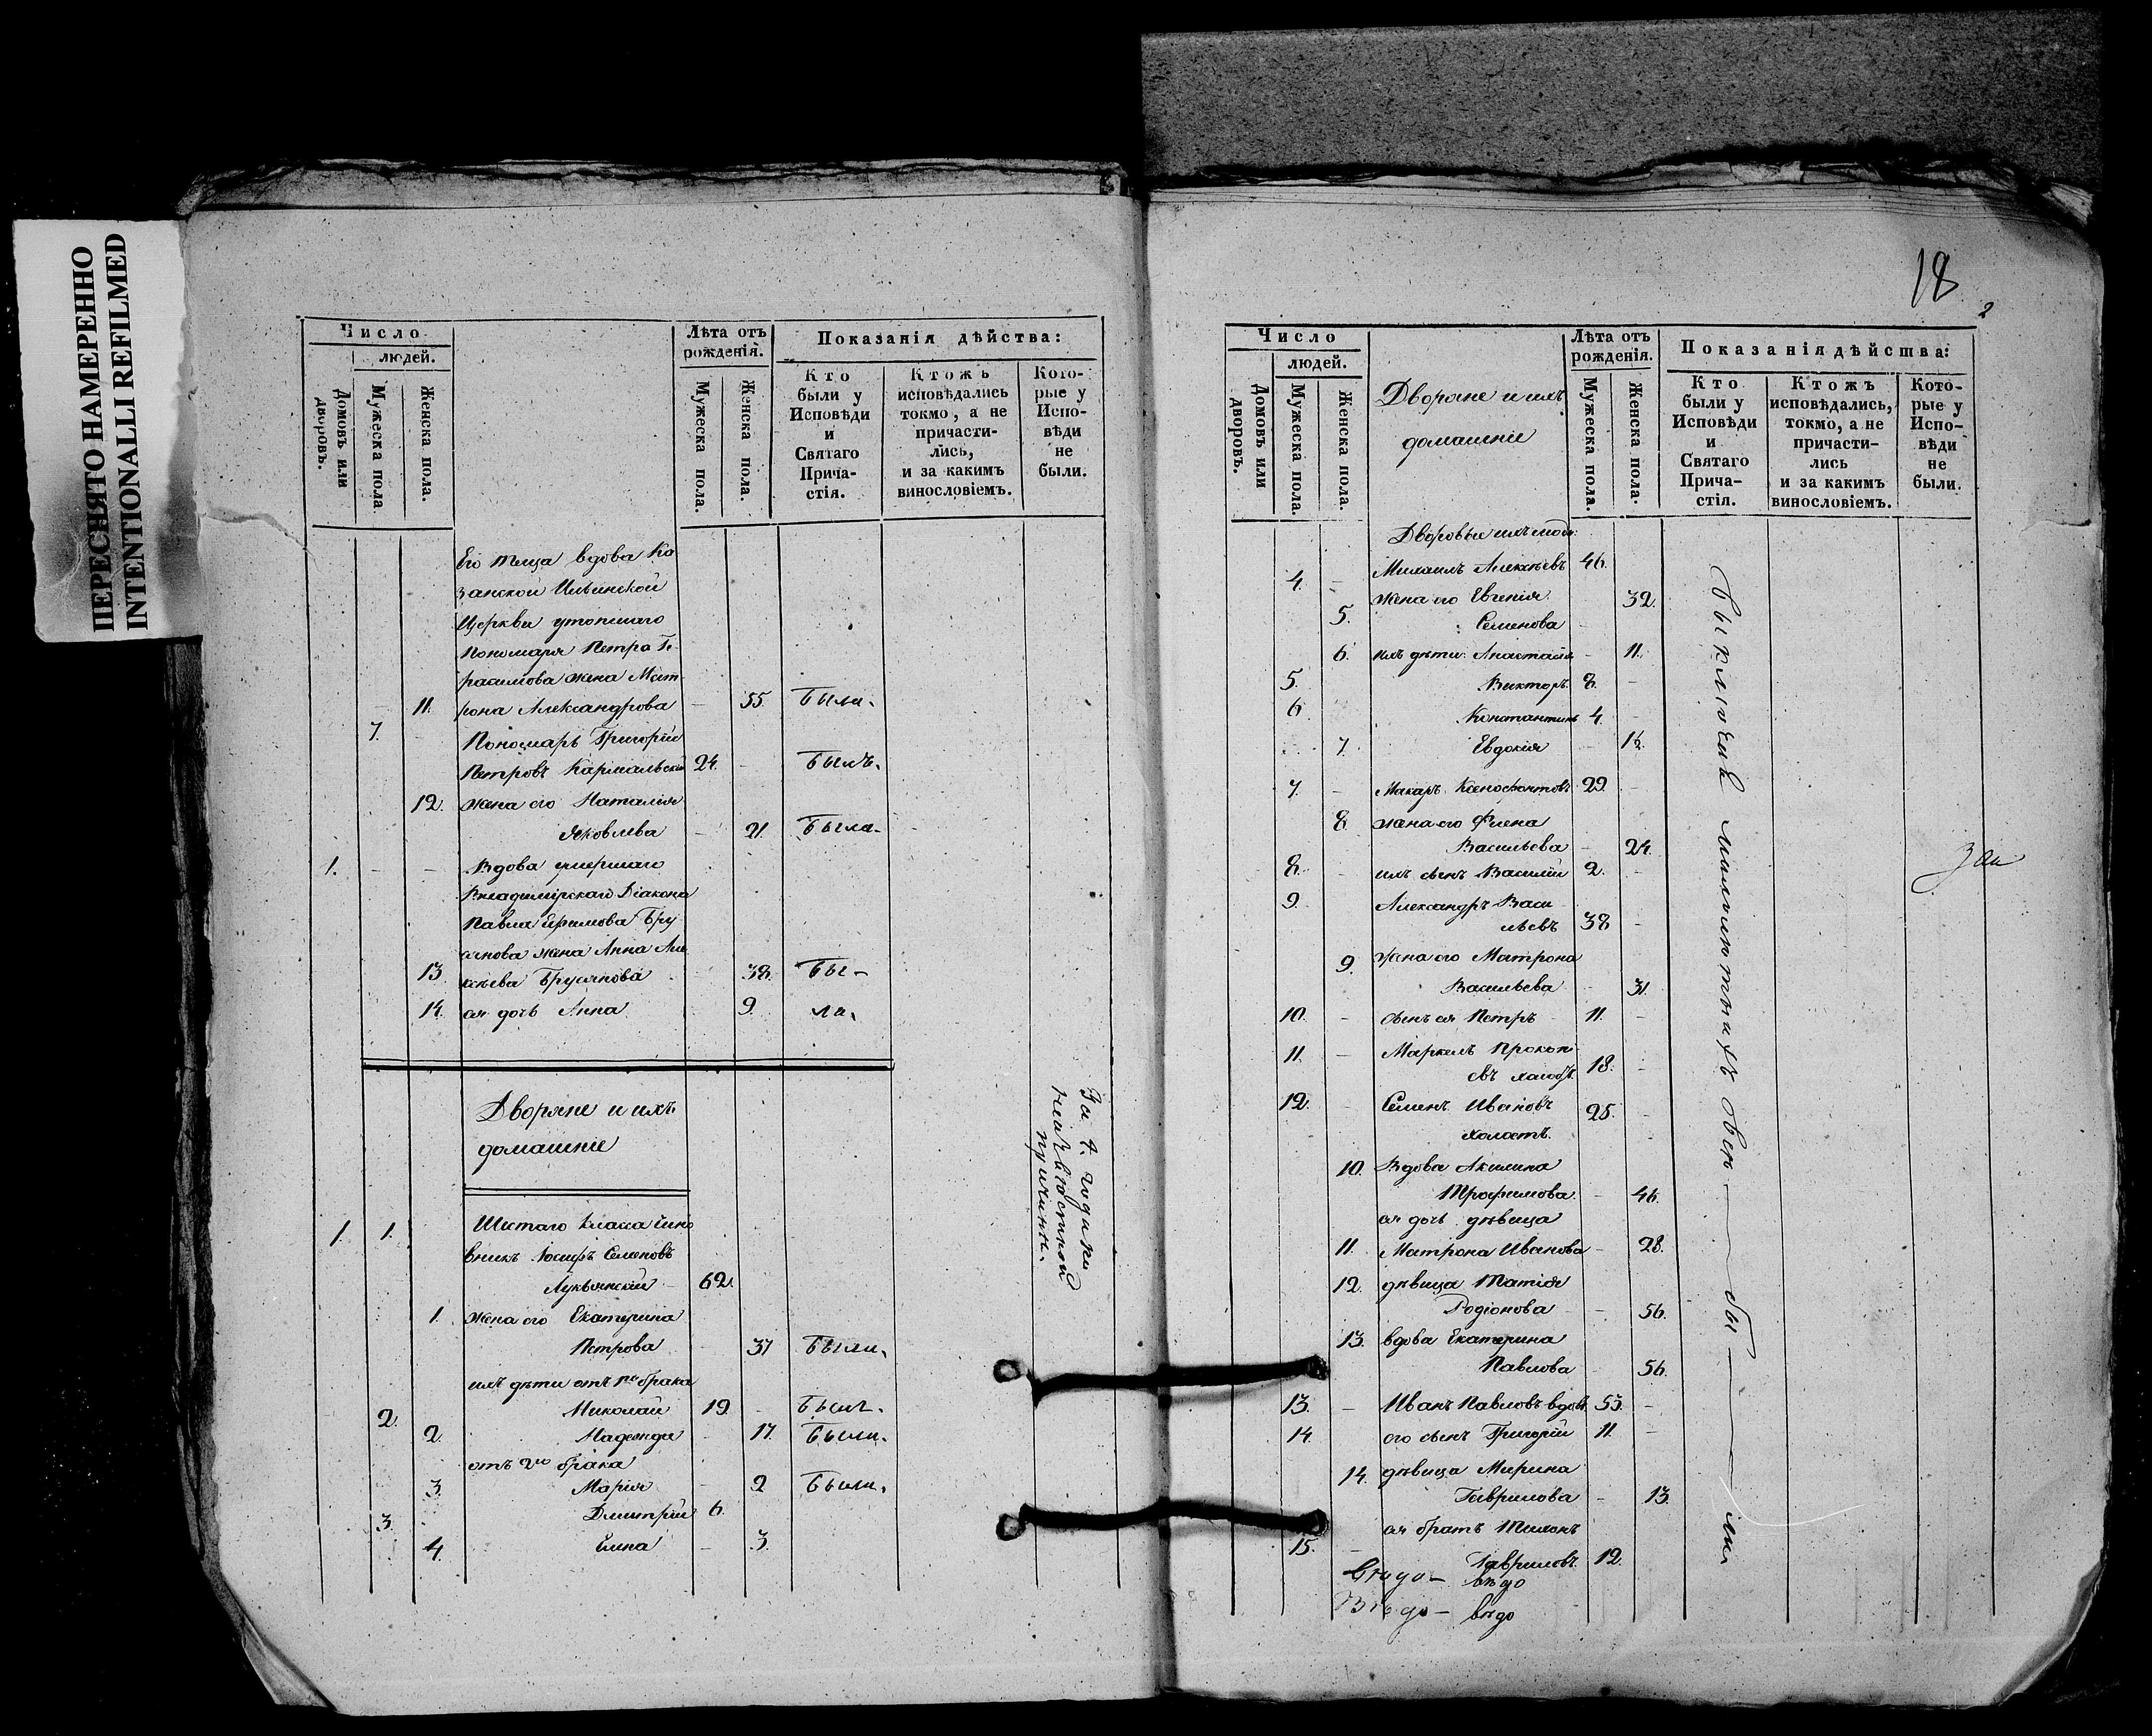 ПЕРЕСНЯТО НАМЕРЕННО
INTENTIONALLI REFILMED
Число
людей.
Домовъ или дворовъ.
Мужеска пола
Женска пола.
Лѣта отъ рожденія.
Мужеска пола.
Женска пола.
Показанія дѣйства:
Кто были у Исповѣди и Святаго Прича-стія.
Ктожъ исповѣдались токмо, а не причасти-лись, и за какимъ винословіемъ.
Кото-рые у Испо-вѣди не были.
Его теща вдова Ка
занской Ильинской
Церкви утопшаго
Пономаря Петра Ге-
расимова жена Мат-
11. рона Александрова - 55. Была.
7. - Пономарь Григорій
Петровъ Кармальскій 24. - Былъ.
12. жена его Наталія
Яковлева - 21. Была.
1. - - Вдова умершаго
Владимірскаго Діакона
Павла Ефимова Бру
снова жена Анна Але
13. ксѣева Бруснова - 38. Бы-
14. ея дочь Анна 9. ла.
Дворяне и ихъ
домашніе
1. 1. Шестаго класса чино
вникъ Іосифъ Семеновъ
Лукьянскій - 62.
За 4. годами
неизвѣстной
причины.
1. жена его Екатерина
Петрова 37 Была.
ихъ дѣти отъ 1го брака
2. Николай 19. - Былъ.
2. Надежда - 17. Была.
отъ 2го брака
3. Марія - 9 Была.
3. Дмитрій 6.
4. Елена - 3.
18
2
Число
людей.
Домовъ или дворовъ.
Мужеска пола.
Женска пола.
Дворяне и ихъ
домашніе
Лѣта отъ рожденія.
Мужеска пола.
Женска пола.
Показанія дѣйства:
Кто были у Исповѣди и Святаго Прича-стія.
Ктожъ исповѣдались, токмо, а не причасти-лись и за какимъ винословіемъ.
Кото-рые у Испо-вѣди не были.
Дворовые ихъ люди:
4. - Михаилъ Алексѣевъ 46.
5. жена его Евгенія 32.
Семенова -
6. ихъ дѣти: Анастасія - 11.
5. Викторъ 8. -
6. Константинъ 4. -
7. Евдокія
7. - Макаръ Ксенофонтовъ 29. -
8. жена его Фіена
Васильева - 24.
8. - ихъ сынъ Василій 2. -
9. Александръ Васи
льевъ 38 -
9. жена его Матрона
Васильева - 31.
10. - сынъ ея Петръ - 11. -
11. - Маркелъ Прокопі-
евъ холостъ 18. -
12. - Семенъ Ивановъ 25. -
холостъ.
10. Вдова Акилина
Трофимова - 46.
ея дочь дѣвица
11. Матрона Иванова - 28.
12. дѣвица Татія
Родіонова - 56.
13. вдова Екатерина
Павлова - 56.
13. - Иванъ Павловъ вдовъ. 53. -
14. его сынъ Григорій 11. -
14. дѣвица Мирина
Гаврилова - 13.
ея братъ Тихонъ
15. - Гавриловъ 12.